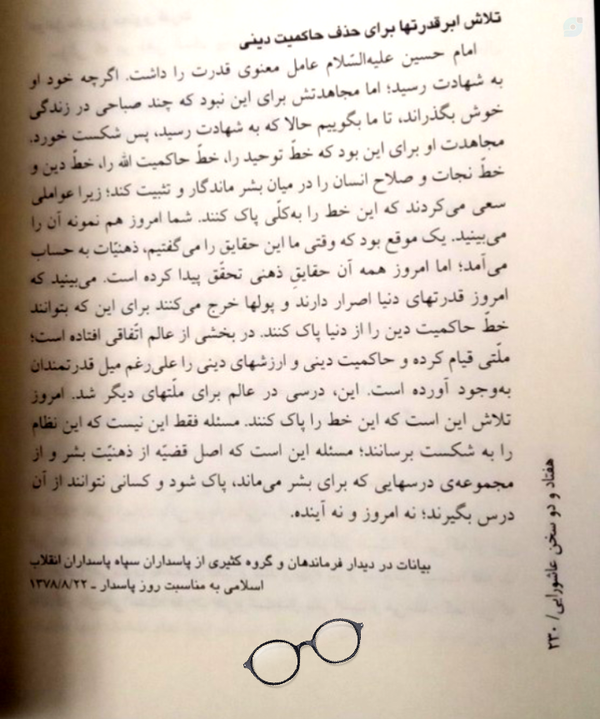 تلاش ابرقدرتها برای حذف حاکمیت دینی
امام حسین علیه‌السّلام عامل معنوی قدرت را داشت. اگرچه خود او
به شهادت رسید؛ اما مجاهدتش برای این نبود که چند صباحی در زندگی
خوش بگذراند، تا ما بگوییم حالا که به شهادت رسید، پس شکست خورد.
مجاهدت او برای این بود که خطّ توحید را، خطّ حاکمیت الله را، خطّ دین و
خطّ نجات و صلاح انسان را در میان بشر ماندگار و تثبیت کند؛ زیرا عواملی
سعی می‌کردند که این خط را به‌کلّی پاک کنند. شما امروز هم نمونه آن را
می‌بینید. یک موقع بود که وقتی ما این حقایق را می‌گفتیم، ذهنیّات به حساب
می‌آمد؛ اما امروز همه آن حقایقِ ذهنی تحقّق پیدا کرده است. می‌بینید که
امروز قدرتهای دنیا اصرار دارند و پولها خرج می‌کنند برای این که بتوانند
خطّ حاکمیت دین را از دنیا پاک کنند. در بخشی از عالم اتّفاقی افتاده است؛
ملّتی قیام کرده و حاکمیت دینی و ارزشهای دینی را علی‌رغم میل قدرتمندان
به‌وجود آورده است. این، درسی در عالم برای ملّتهای دیگر شد. امروز
تلاش این است که این خط را پاک کنند. مسئله فقط این نیست که این نظام
را به شکست برسانند؛ مسئله این است که اصل قضیّه از ذهنیّت بشر و از
مجموعه‌ی درسهایی که برای بشر می‌ماند، پاک شود و کسانی نتوانند از آن
درس بگیرند؛ نه امروز و نه آینده.
بیانات در دیدار فرماندهان و گروه کثیری از پاسداران سپاه پاسداران انقلاب
اسلامی به مناسبت روز پاسدار ـ ۱۳۷۸/۸/۲۲
هفتاد و دو سخن عاشورایی/ ۲۳۰